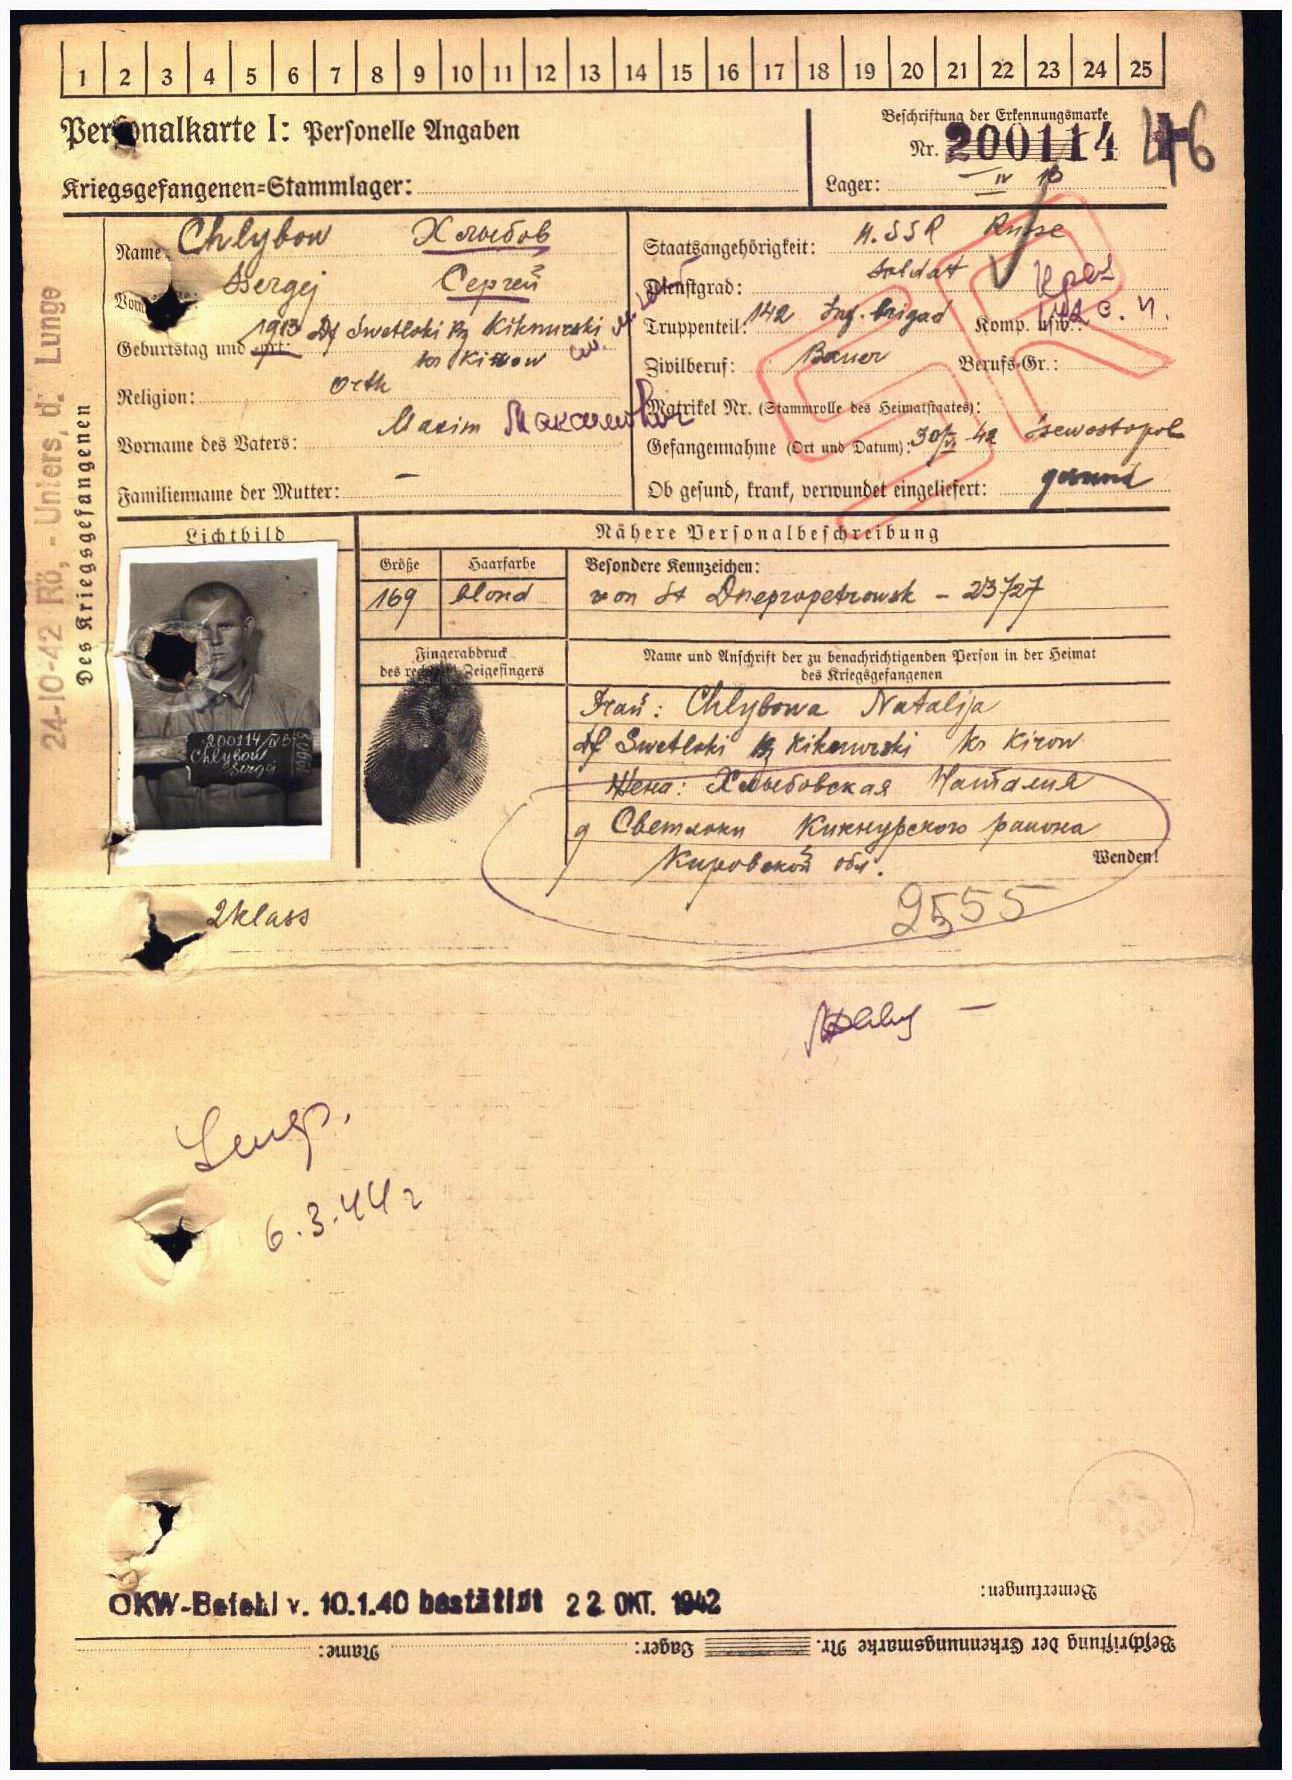 1 2 3 4 5 6 7 8 9 10 11 12 13 14 15 16 17 18 19 20 21 22 23 24 25
Personalkarte I: Personelle Angaben
Beschriftung der Erkennungsmarke
Nr. 200114
46
Kriegsgefangenen=Stammlager:
Lager: IV B
24-10-42 Rö.-Unters. d. Lunge
Des Kriegsgefangenen
Name: Chlybow Хлыбов
Vorname: Sergej Сергей
Geburtstag und =ort: 1913 Df Swetloki Bz Kiknurski
kr Kirow
Religion: orth
Vorname des Vaters: Maxim
Familienname der Mutter: –
Staatsangehörigkeit: Russe
Dienstgrad: Soldat
Truppenteil: 142 Ing. brigad Komp. usw.:
Zivilberuf: Bauer Berufs=Gr.:
Matrikel Nr. (Stammrolle des Heimatstaates):
Gefangennahme (Ort und Datum): 30/VI 42 Ssewostopol
Ob gesund, krank, verwundet eingeliefert: gesund
SR
Lichtbild
Nähere Personalbeschreibung
Größe Haarfarbe Besondere Kennzeichen:
169 blond von St Dnepropetrowsk – 23727
Fingerabdruck
des rechten Zeigefingers
Name und Anschrift der zu benachrichtigenden Person in der Heimat
des Kriegsgefangenen
200114/IV B
Chlybow
Sergej
Frau: Chlybowa Natalija
df Swetloki Bz Kiknurski kr Kirow
Жена: Хлыбовская Наталия
д Светлоки Кикнурского района
Кировской обл.
Wenden!
2 klass
2555
6.3.44 г
OKW-Befehl v. 10.1.40 bestätigt 22. OKT. 1942
Bemerkungen:
Beschriftung der Erkennungsmarke Nr. Lager: Name: